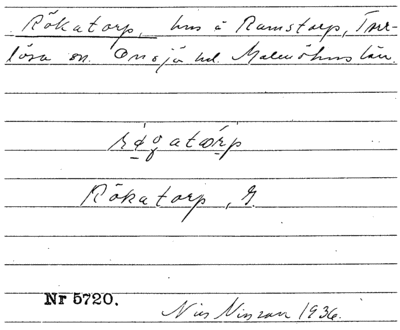 Rökatorp, hus å Ramstorp, Torr-
lösa sn. Onsjö hd. Malmöhus län.
Rökatorp, G.
Nr 5720.
Nils Nilsson 1936.